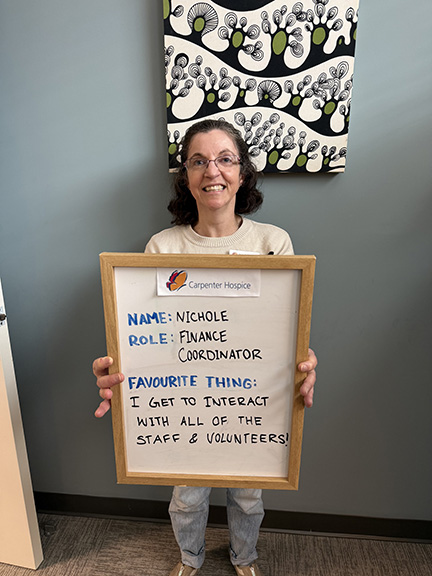 Carpenter Hospice
NAME: NICHOLE
ROLE: FINANCE
COORDINATOR
FAVOURITE THING:
I GET TO INTERACT
WITH ALL OF THE
STAFF & VOLUNTEERS!